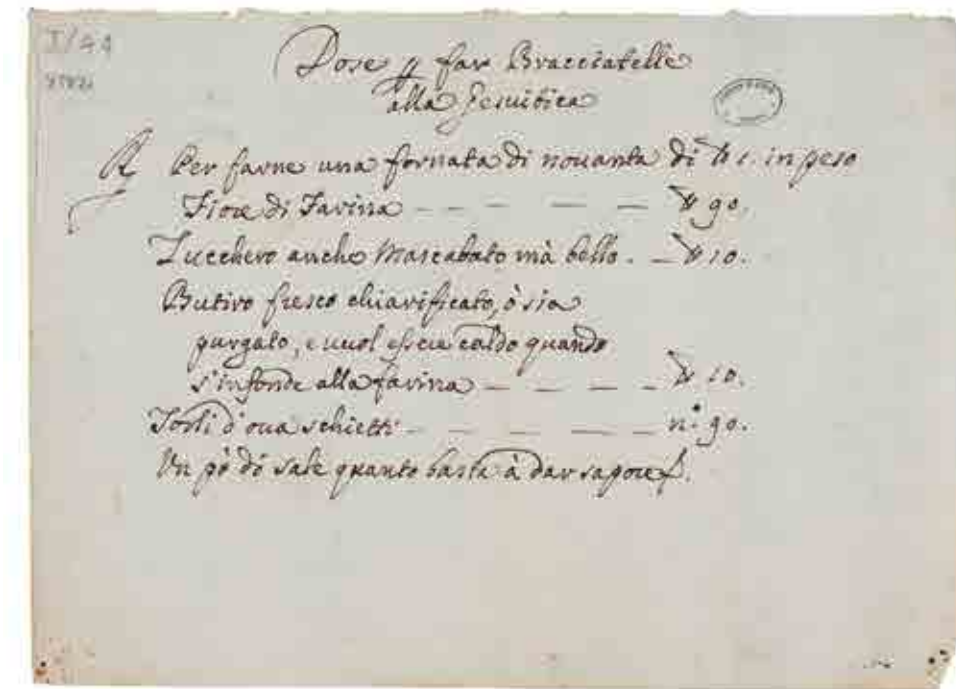 I/44
Dose p far Bracciatelle
alla Gesuitica
R Per farne una fornata di novanta di lb 1. in peso
Fiore di Farina - - - - - lb 90.
Zucchero anche Mascabato mà bello. - lb 10.
Butiro fresco chiarificato, ò sia
purgato, e vuol essere caldo quando
s'infonde alla farina - - - - lb 10.
Torli d'oua schietti - - - - - n.° 90.
Un pò di sale quanto basta à dar sapore.